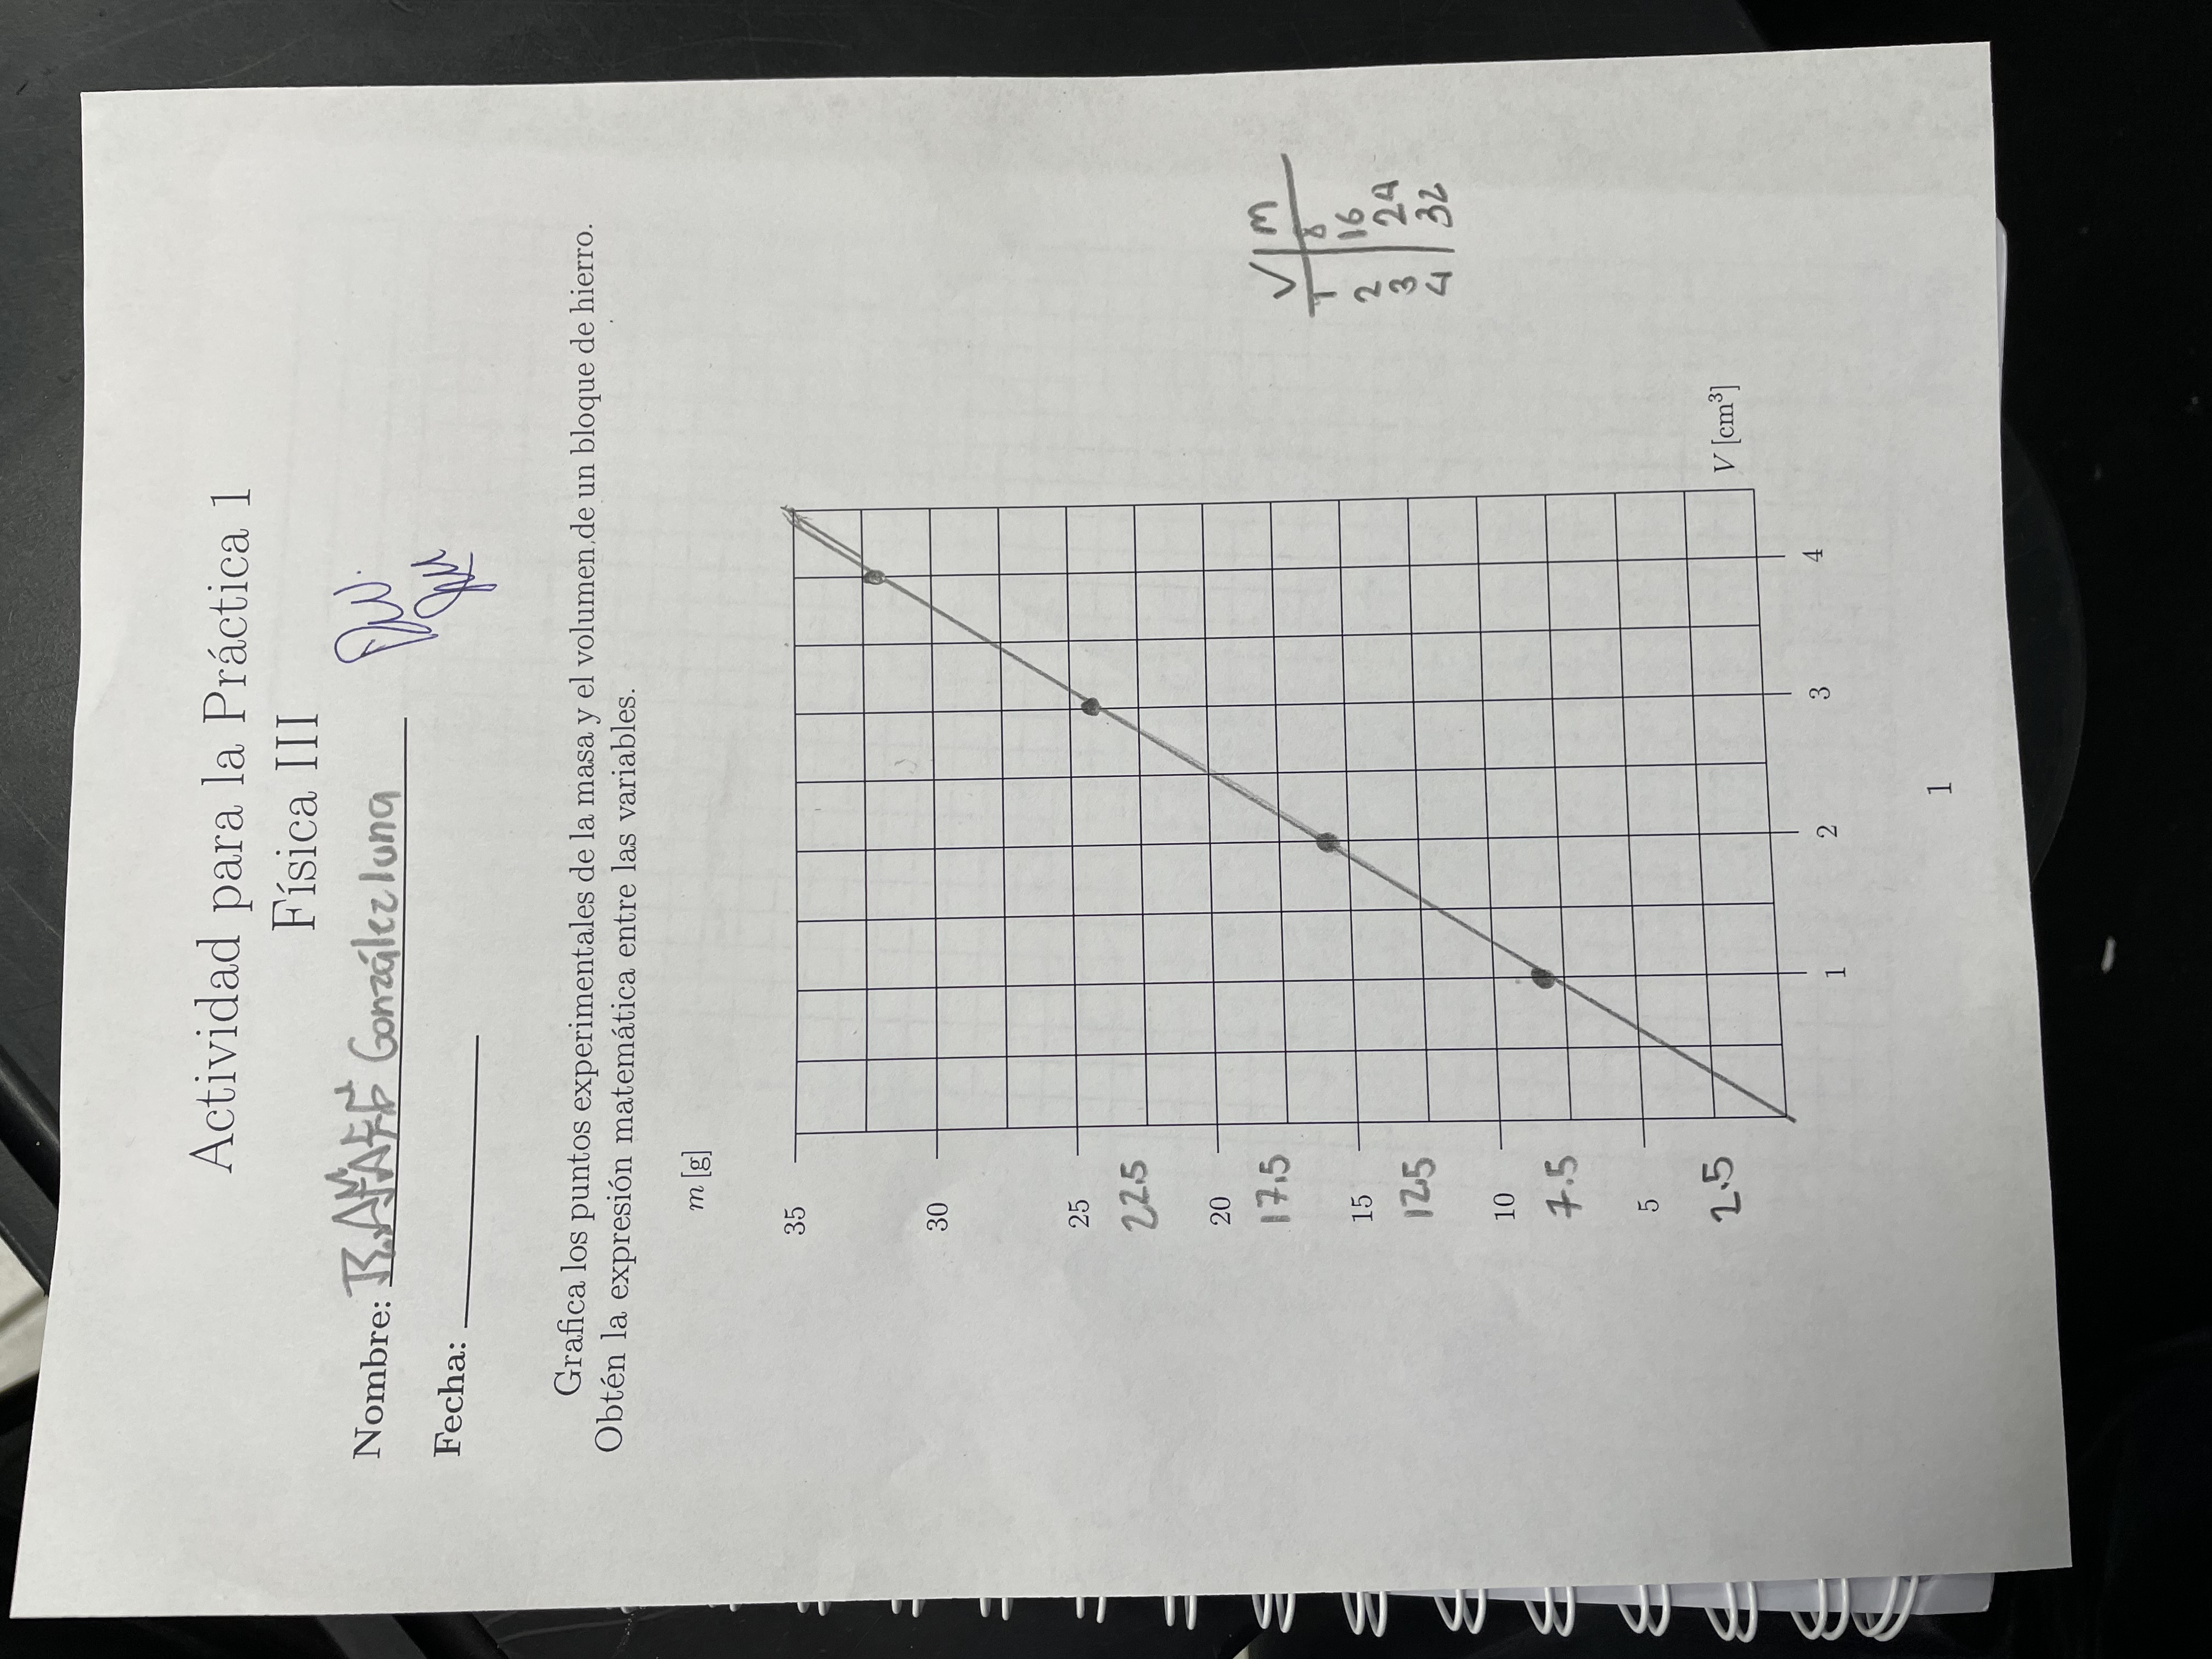 Actividad para la Práctica 1
Física III
Nombre: González luna
Fecha:
Grafica los puntos experimentales de la masa y el volumen de un bloque de hierro.
Obtén la expresión matemática entre las variables.
m [g]
35
30
25
22.5
20
17.5
15
12.5
10
7.5
5
2.5
V [cm³]
1 2 3 4
V M
1 8
2 16
3 24
4 32
1